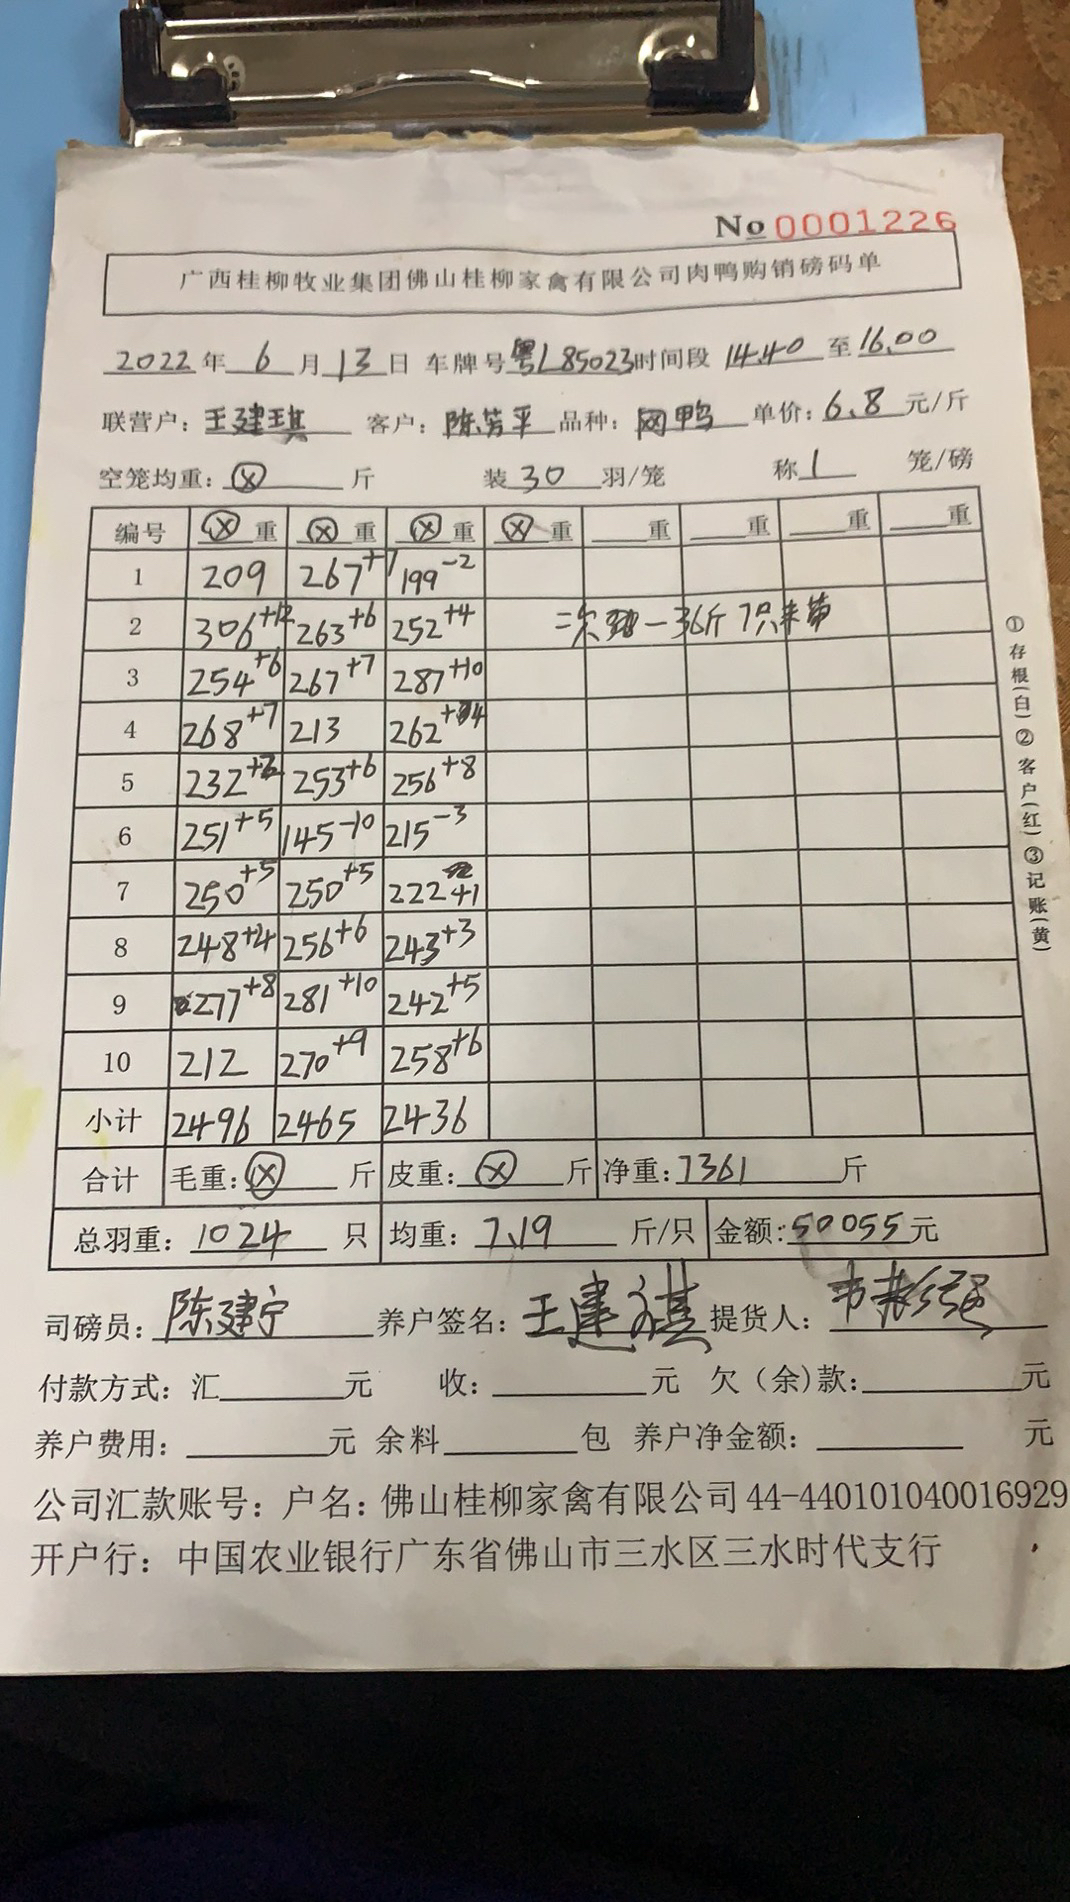 No 0001226
广西桂柳牧业集团佛山桂柳家禽有限公司肉鸭购销磅码单
2022年 6 月 13 日 车牌号 粤L85023 时间段 14.40 至 16.00
联营户：王建琪 客户：陈芳平 品种：网鸭 单价：6.8 元/斤
空笼均重：Ⓧ 斤 装 30 羽/笼 称 1 笼/磅
编号 Ⓧ 重 Ⓧ 重 Ⓧ 重 Ⓧ 重 重 重 重 重
1 209 267+7 199-2
2 306+12 263+6 252+4 二次 一36斤 7只未带
3 254+6 267+7 287+10
4 268+7 213 262+4
5 232+2 253+6 256+8
6 251+5 145-10 215-3
7 250+5 250+5 222+1
8 248+4 256+6 243+3
9 277+8 281+10 242+5
10 212 270+9 258+6
小计 2496 2465 2436
合计 毛重：Ⓧ 斤 皮重：Ⓧ 斤 净重：7361 斤
总羽重：1024 只 均重：7.19 斤/只 金额：50055元
司磅员：陈建宁 养户签名：王建琪 提货人：
付款方式：汇 元 收： 元 欠（余)款： 元
养户费用： 元 余料 包 养户净金额： 元
公司汇款账号：户名：佛山桂柳家禽有限公司 44-440101040016929
开户行：中国农业银行广东省佛山市三水区三水时代支行
①存根(白)②客户(红)③记账(黄)